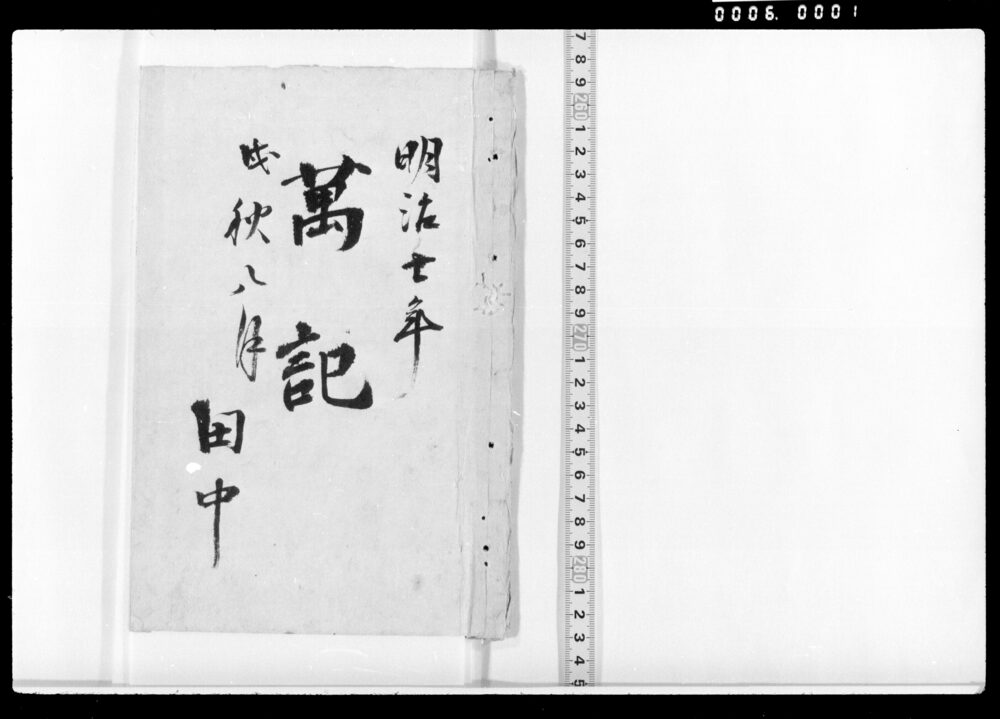 0006. 0001
明治七年
萬記
戌秋八月
田中
7 8 9 260 1 2 3 4 5 6 7 8 9 270 1 2 3 4 5 6 7 8 9 280 1 2 3 4 5